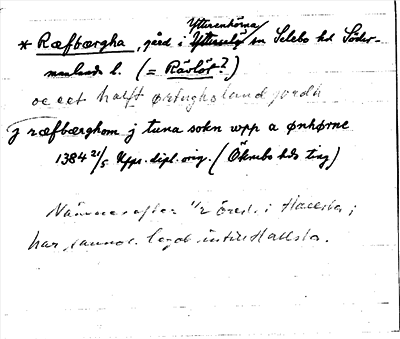 Ytterenhörna
* Ræfbærgha, gård i Ytterselö sn Selebo hd Söder-
manlands l. (= Rävlöt?)
oc eet halft ørtughsland jordh
j ræfbærghom j tuna sokn wpp a ønhørne
1384 21/5 Upps. dipl. orig. (Öknebo hds ting)
Nämnes efter 1/2 öresl. i Hallsta;
har sannol. legat intill Hallsta.